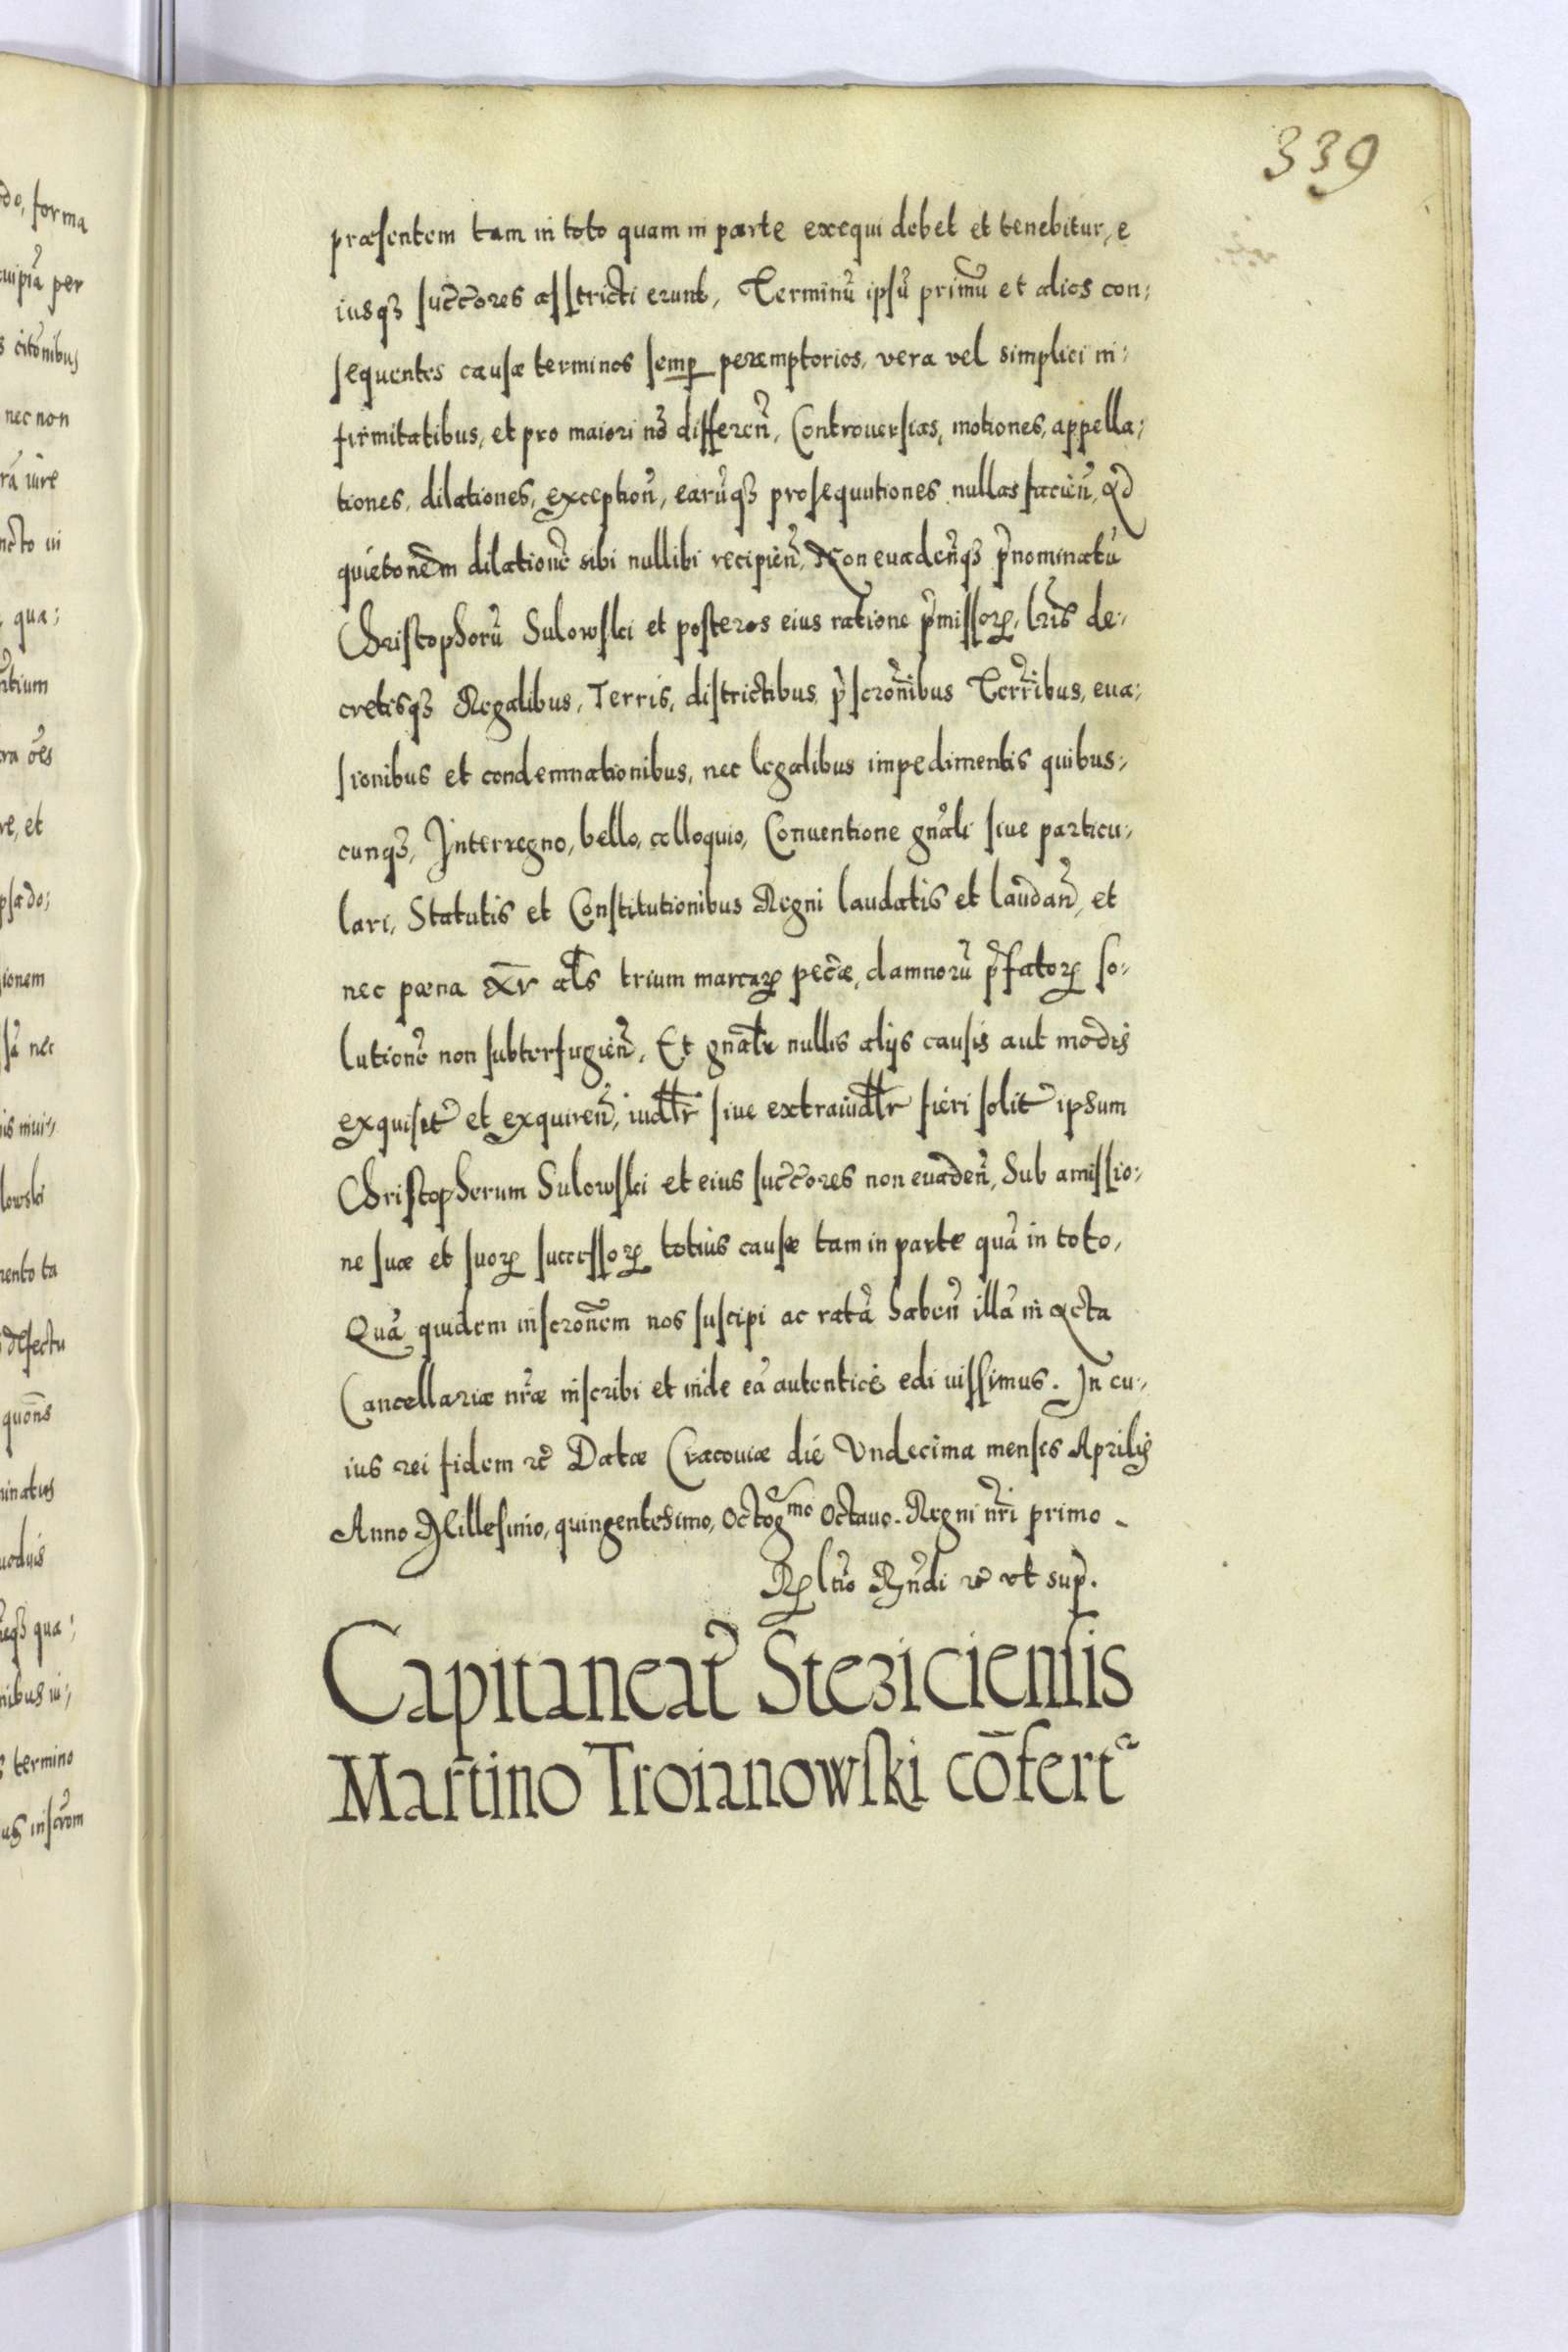 339
præsentem tam in toto quam in parte exequi debet et tenebitur, e
iusqꝫ succ̃ores asstricti erunt, Terminũ ipsũ primũ et alios con;
sequentes causæ terminos semꝑ peremptorios, vera vel simplici in;
firmitatibus, et pro maiori nõ differeñ, Controuersias, motiones, appella;
tiones, dilationes, exceptioñ, earũqꝫ prosequutiones nullas facieñ, Ad
quietonẽm dilationẽ sibi nullibi recipieñ, Non euadeñqꝫ p̃nominatũ
Christophorũ Sulowski et posteros eius ratione p̃missorꝝ, lr̃is de;
cretisqꝫ Regalibus, Terris, districtibus, p̃scrõnibus Terr̃ibus, eua;
sionibus et condemnationibus, nec legalibus impedimentis quibus;
cunqꝫ, Interregno, bello, colloquio, Conuentione gñali siue particu;
lari, Statutis et Constitutionibus Regni laudatis et laudañ, et
nec pœna Xv al̃s trium marcarꝝ pec̃æ, damnorũ p̃fatorꝝ so;
lutionẽ non subterfugieñ, Et gñalr nullis alijs causis aut modis
exquisit̃ et exquireñ, iudl̃r siue extraiudl̃r fieri solit̃ ipsum
Christophorum Sulowski et eius succ̃ores non euadeñ, Sub amissio;
ne suæ et suorꝝ successorꝝ totius causæ tam in parte quã in toto,
Quã quidem inscronẽm nos suscipi ac ratã habeñ illã in Acta
Cancellariæ nr̃æ inscribi et inde eã autenticè edi iussimus. In cu;
ius rei fidem ꝛc̃ Datæ Cracouiæ die Vndecima mensis Aprilis
Anno Millesimo, quingentesimo, Octog^mo Octauo. Regni nr̃i primo.
Rꝑ ltio Rñdi ꝛc̃ vt sup̃.
Capitaneat̃ Steziciensis
Martino Troianowski cõfert᷑
do, forma
cuipiã per
s citõnibus
nec non
rã iure
ncto in
, qua;
ntium
ra oẽs
re, et
psado;
sionem
sã nec
lowski
mento ta
defectu
quons
minatus
modis
eqꝫ qua;
nibus in;
s termino
us inscrõm